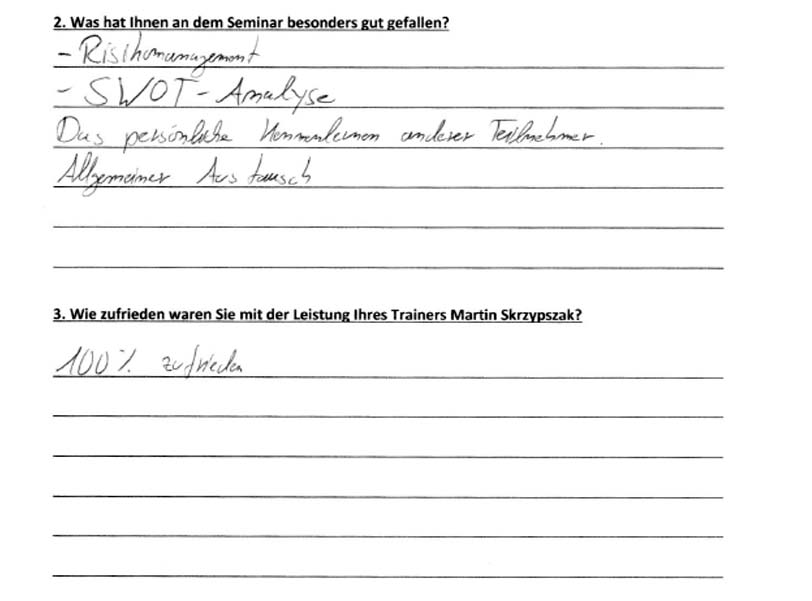 2. Was hat Ihnen an dem Seminar besonders gut gefallen?
- Risikomanagement
- SWOT-Analyse
Das persönliche Kennenlernen anderer Teilnehmer.
Allgemeiner Austausch
3. Wie zufrieden waren Sie mit der Leistung Ihres Trainers Martin Skrzypszak?
100% zufrieden